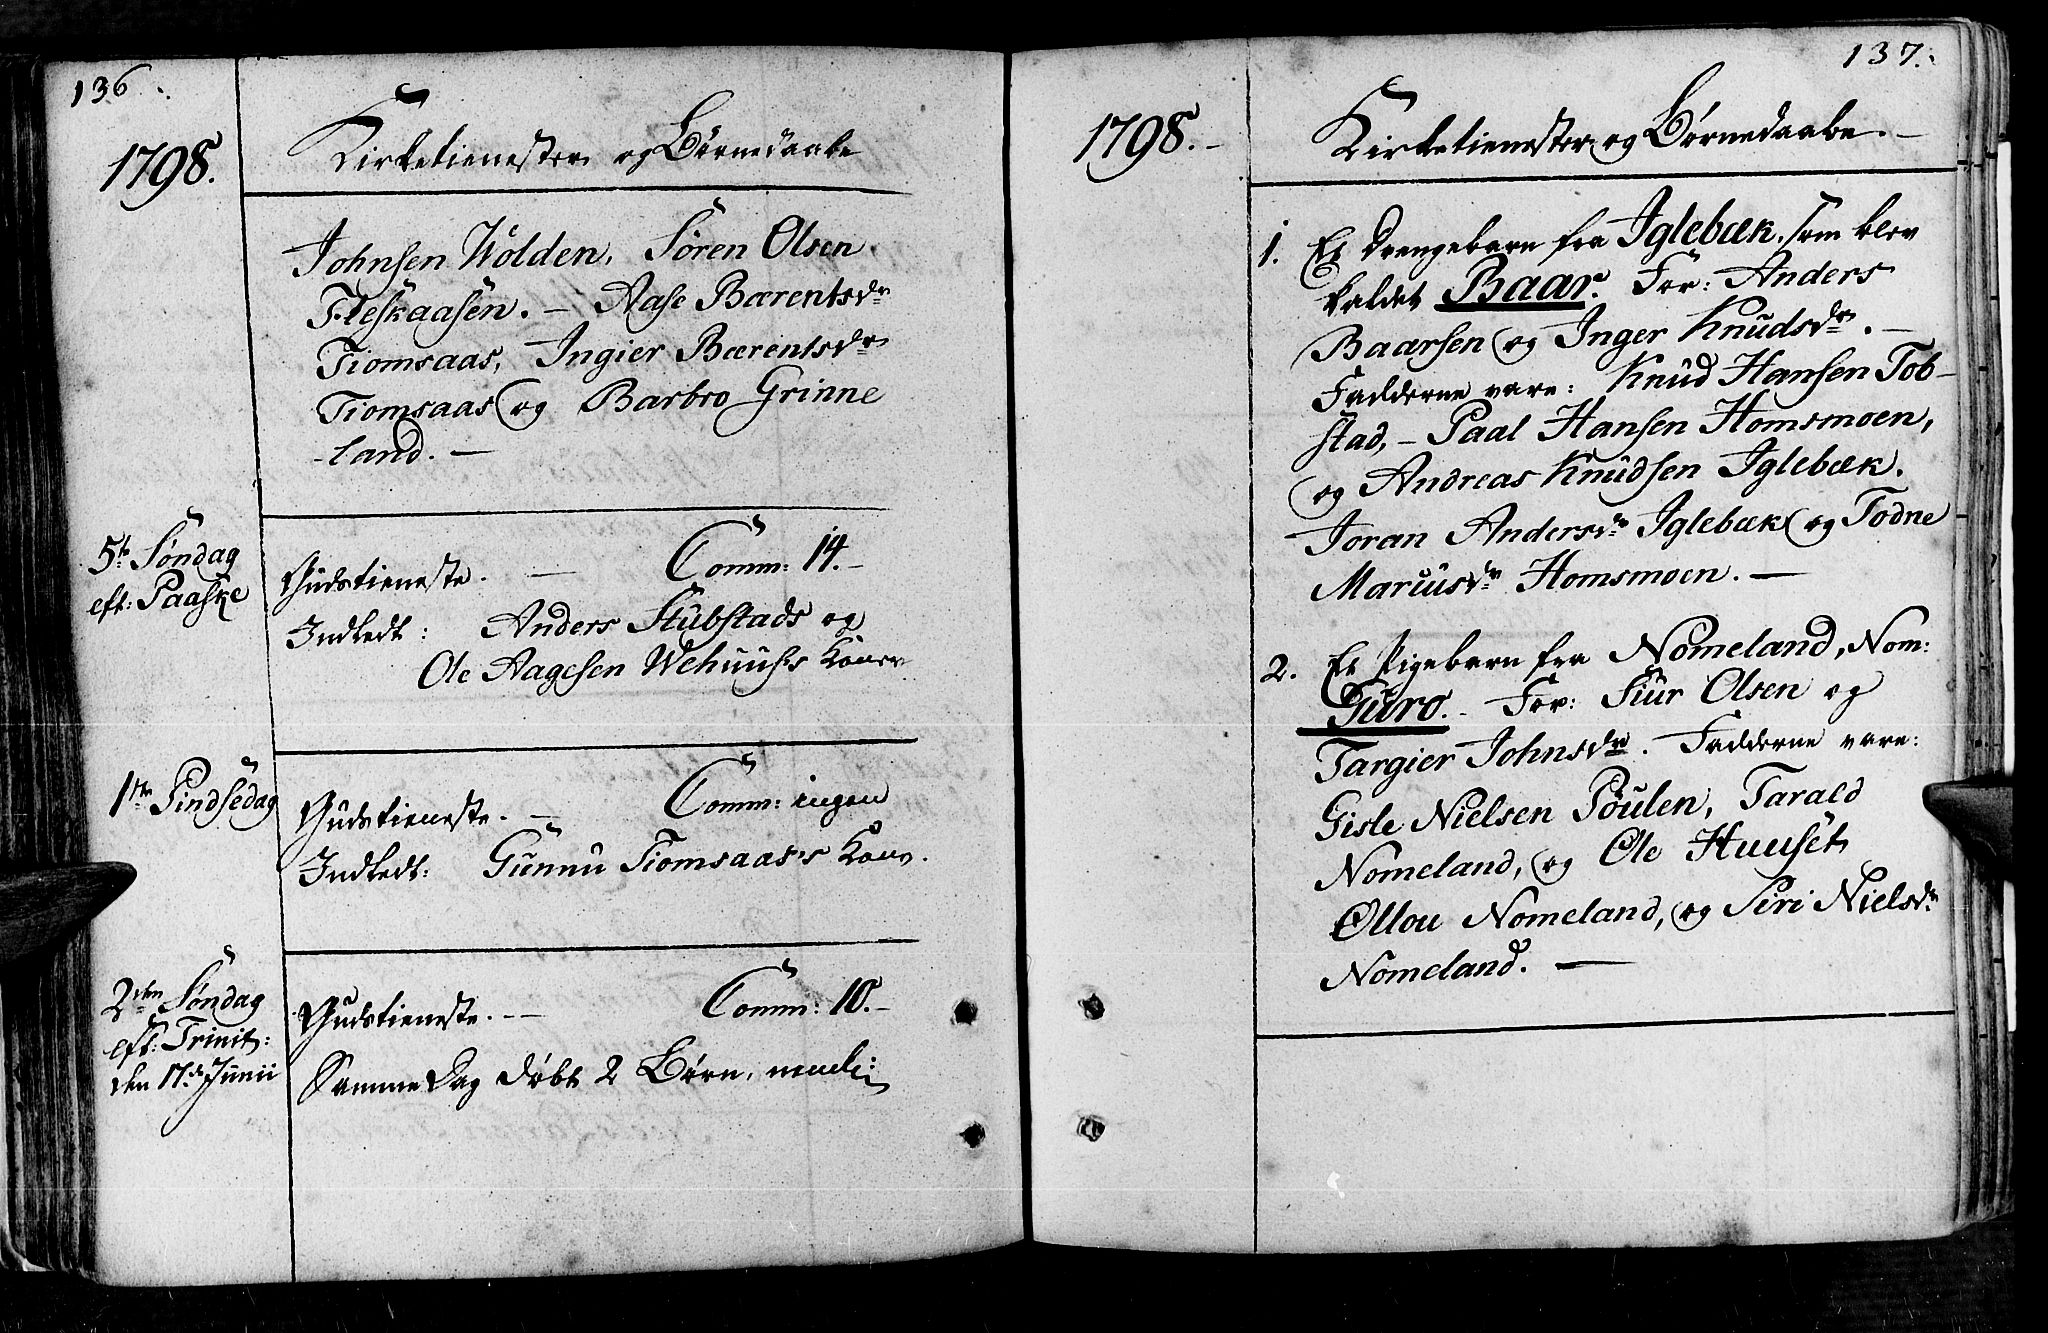 136.
1798.
Kirketienester og Børnedaabe
Johnsen Wolden, Sören Olsen
Fleskaasen. — Aase Bærentsdr
Tiomsaas, Ingier Bærentsdr
Tiomsaas og Barbro Grinne
-land. —
5te Søndag
eft: Paaske
Gudstieneste. — Comm: 14.-
Indledt: Anders Stubstads og
Ole Aagesen Wehuus's Koner
1ste Pindsedag
Gudstieneste. — Comm: ingen
Indledt: Gunnu Tiomsaas's Kone.
2den Søndag
eft: Trinit:
den 17de Junii
Gudstieneste. — Comm: 10.-
Samme Dag døbt 2 Børn, nemli:
137.
1798.-
Kirketienester og Børnedaabe. —
1. Et Drengebarn fra Iglebæk, som blev
kaldet Baar. For: Anders
Baarsen og Inger Knudsdr. —
Fadderne vare: Knud Hansen Tob-
stad, - Paal Hansen Homsmoen,
og Andreas Knudsen Iglebæk.
Joran Andersdr Iglebæk og Todne
Marcusdr Homsmoen. —
2. Et Pigebarn fra Nomeland, Nom:
Guro. - For: Siur Olsen og
Targier Johnsdr. Fadderne vare:
Gisle Nielsen Poulen, Tarald
Nomeland, og Ole Huuset
Ollou Nomeland, og Siri Nielsdr
Nomeland. —